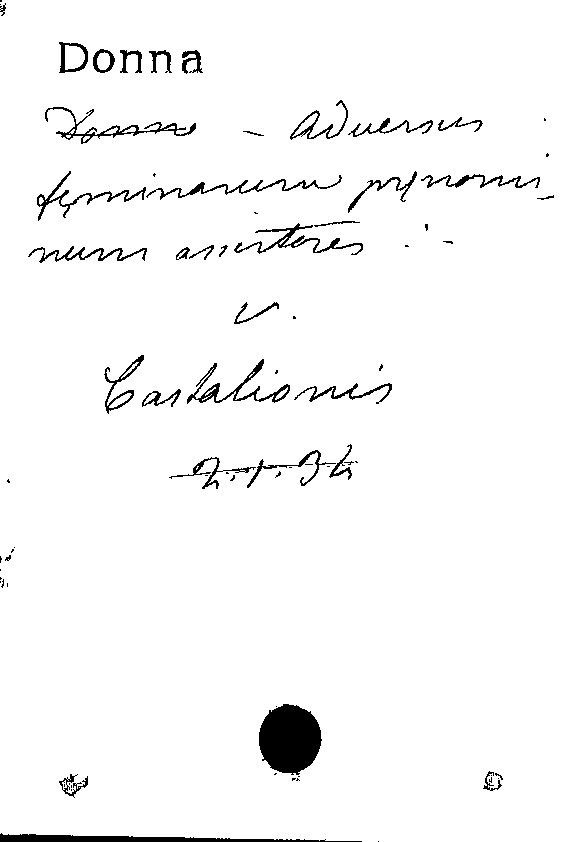 Donna
Donna - Adversus
fęminarum pręnomi-
num assertores :-
v.
Castalionis
2.1.34